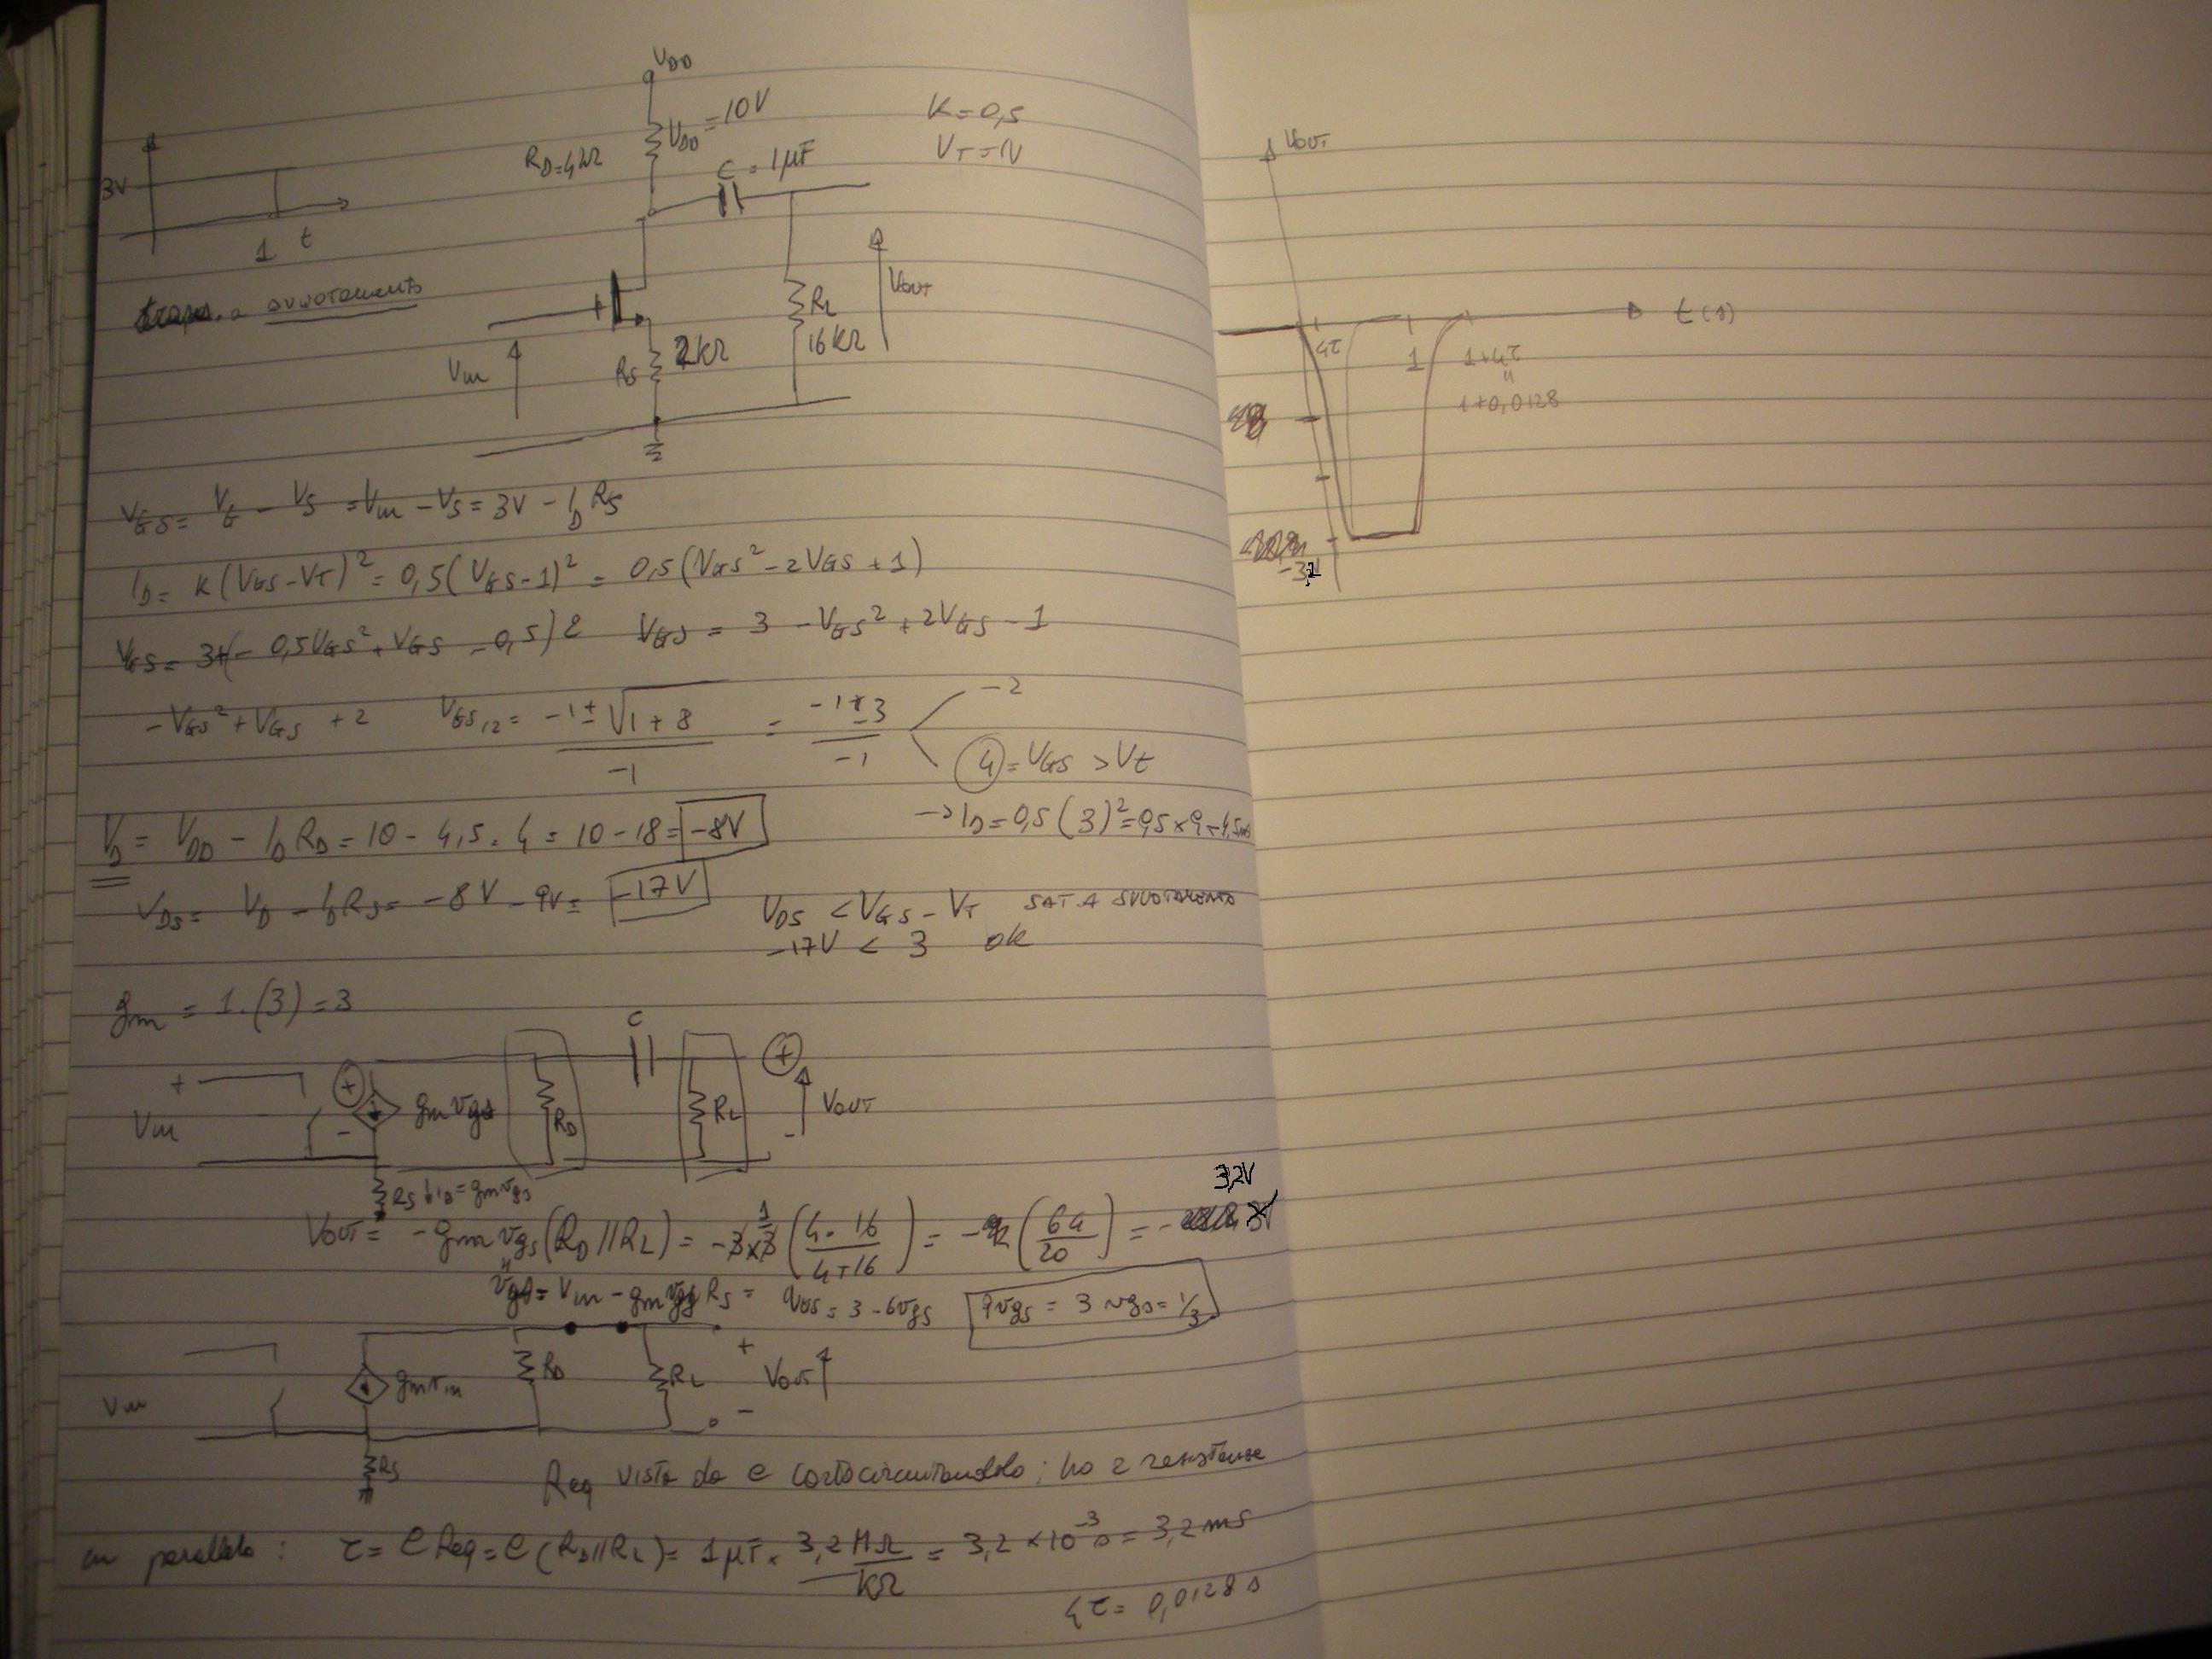 VDD
VDD = 10V
RD=4kΩ
C = 1μF
K = 0,5
VT = 1V
3V
1 t
a svuotamento
Vin
RS 2kΩ
RL
16kΩ
Vout
VGS = VG - VS = Vin - VS = 3V - ID RS
ID = K(VGS-VT)² = 0,5(VGS-1)² = 0,5(VGS² - 2VGS + 1)
VGS = 3+(- 0,5VGS² + VGS - 0,5)2 VGS = 3 - VGS² + 2VGS - 1
-VGS² + VGS + 2 VGS1,2 = -1±√1+8 / -1 = -1±3 / -1 -2
4 = VGS > Vt
VD = VDD - ID RD = 10 - 4,5 · 4 = 10 - 18 = -8V
→ ID = 0,5(3)² = 0,5×9 = 4,5mA
VDS = VD - ID RS = -8V - 9V = -17V
VDS < VGS - VT SAT. A SVUOTAMENTO
-17V < 3 ok
gm = 1·(3) = 3
C
+
Vin
+
-
gm vgs
RD
RL
+
Vout
-
RS ↓ iD = gm vgs
3,2V
Vout = - gm vgs (RD//RL) = -3×3 1 (4·16 / 4+16) = - (64/20) = -
vgs = Vin - gm vgs RS = vgs = 3 - 6vgs 9vgs = 3 vgs = 1/3
Vin
gm vin
RD
RL
+
Vout
-
RS
Req vista da C cortocircuitandolo: ho 2 resistenze
in parallelo: τ = C Req = C (RD//RL) = 1μF · 3,2 MΩ / kΩ = 3,2 × 10⁻³ s = 3,2 ms
4τ = 0,0128 s
Vout
t(s)
4τ
1
1+4τ
"
1+0,0128
-3,2